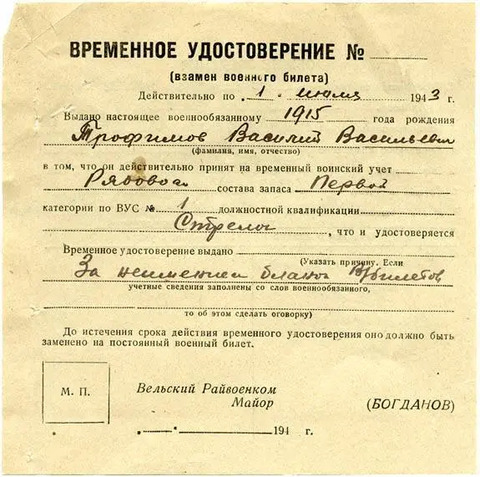 ВРЕМЕННОЕ УДОСТОВЕРЕНИЕ №
(взамен военного билета)
Действительно по 1 июля 1943 г.
Выдано настоящее военнообязанному 1915 года рождения
Трофимов Василий Васильевич
(фамилия, имя, отчество)
в том, что он действительно принят на временный воинский учет
Рядовой состава запаса Первой
категории по ВУС № 1 должностной квалификации
Стрелок, что и удостоверяется
Временное удостоверение выдано
(Указать причину. Если
За неимением бланов В/билетов
учетные сведения заполнены со слов военнообязанного,
то об этом сделать оговорку)
До истечения срока действия временного удостоверения оно должно быть
заменено на постоянный военный билет.
М. П.
Вельский Райвоенком
Майор (БОГДАНОВ)
194 г.